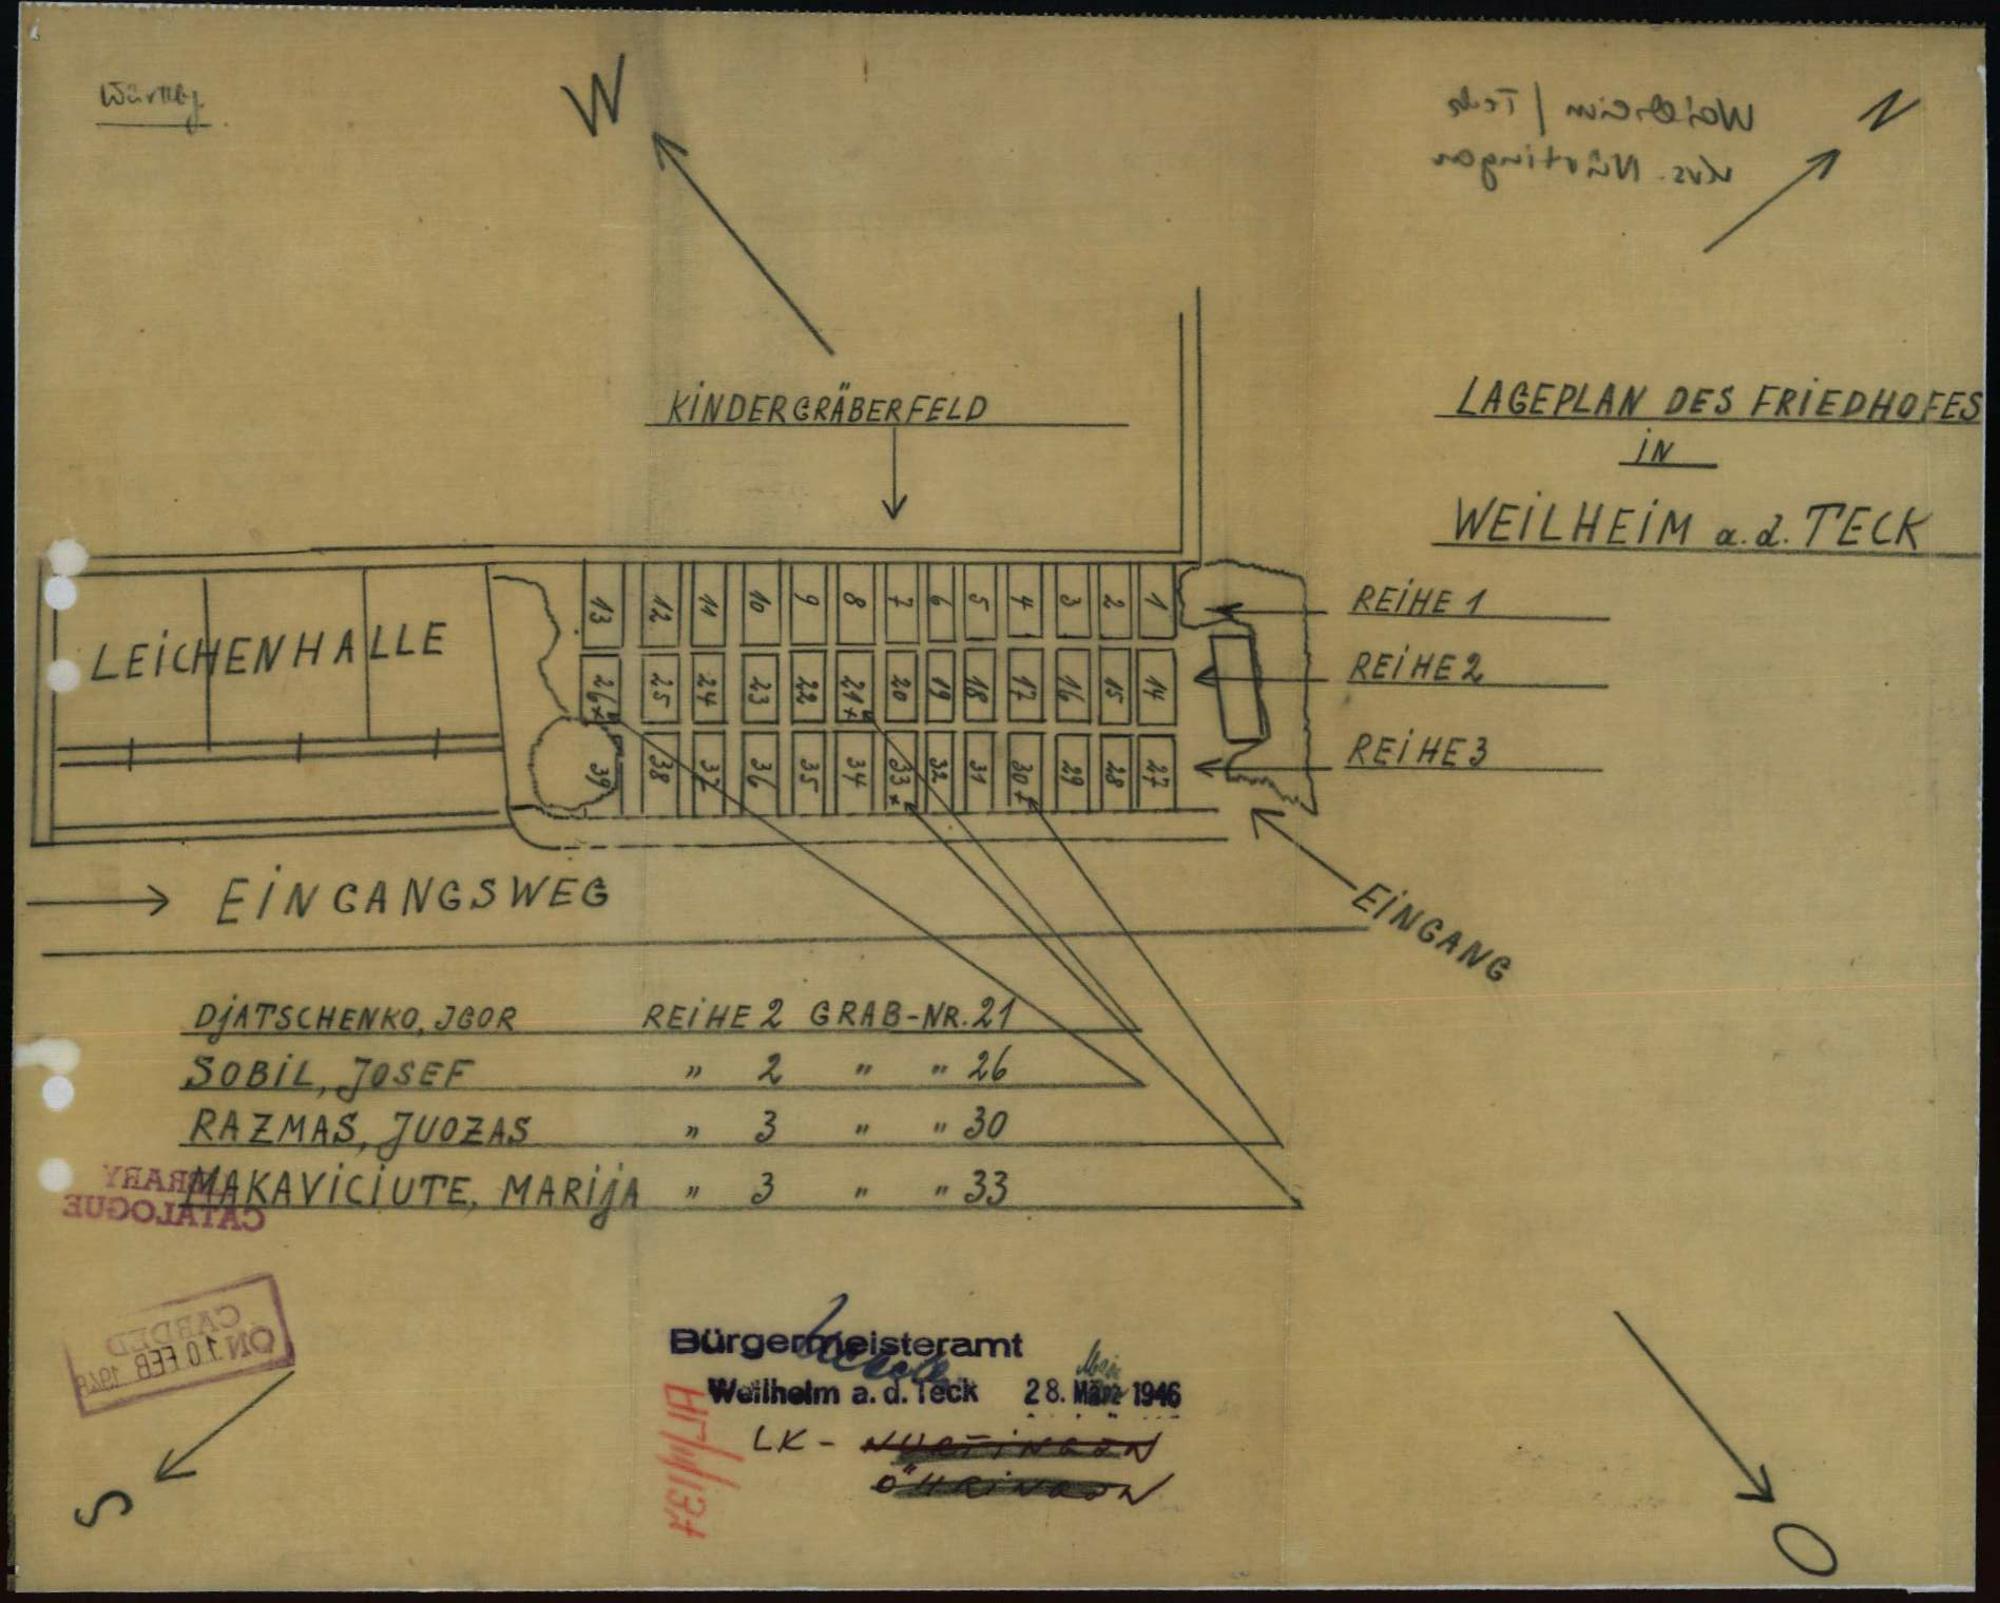 Württbg.
W
Weilheim / Teck
Krs. Nürtingen
N
KINDERGRÄBERFELD
LAGEPLAN DES FRIEDHOFES
IN
WEILHEIM a.d. TECK
13 12 11 10 9 8 7 6 5 4 3 2 1
REIHE 1
LEICHENHALLE
26x 25 24 23 22 21x 20 19 18 17 16 15 14
REIHE 2
39 38 37 36 35 34 33x 32 31 30x 29 28 27
REIHE 3
EINGANGSWEG
EINGANG
DJATSCHENKO, JGOR REIHE 2 GRAB-NR. 21
SOBIL, JOSEF " 2 " " 26
RAZMAS, JUOZAS " 3 " " 30
MAKAVICIUTE, MARIJA " 3 " " 33
LIBRARY
CATALOGUE
CARDED
ON 10 FEB 1948
Bürgermeisteramt
Weilheim a. d. Teck 28. März 1946
Mai
LK - NÜRTINGEN
ÖHRINGEN
S
O